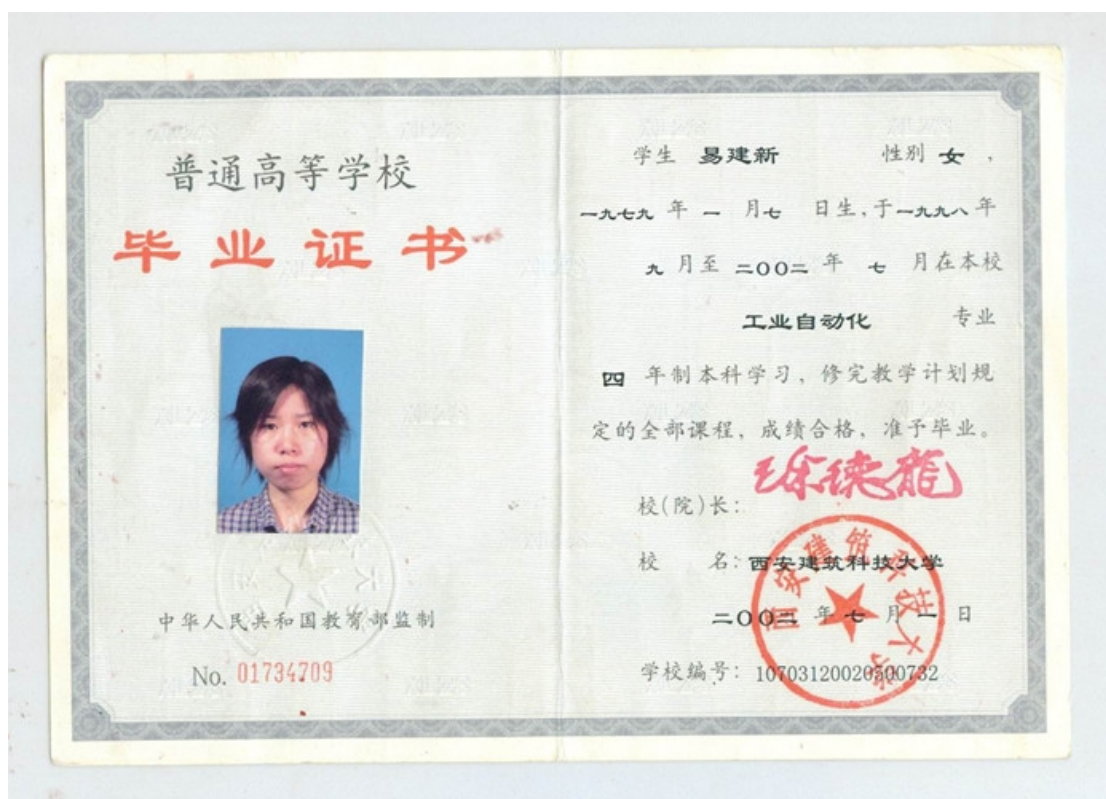 普通高等学校
毕业证书
中华人民共和国教育部监制
No. 01734709
学生 易建新 性别 女 ,
一九七九 年 一 月 七 日生,于一九九八 年
九 月至 二〇〇二 年 七 月在本校
工业自动化 专业
四 年制本科学习，修完教学计划规
定的全部课程，成绩合格，准予毕业。
校(院)长： 徐德龙
校 名：西安建筑科技大学
二〇〇二 年 七 月 一 日
学校编号： 10703120020500732
西安建筑科技大学